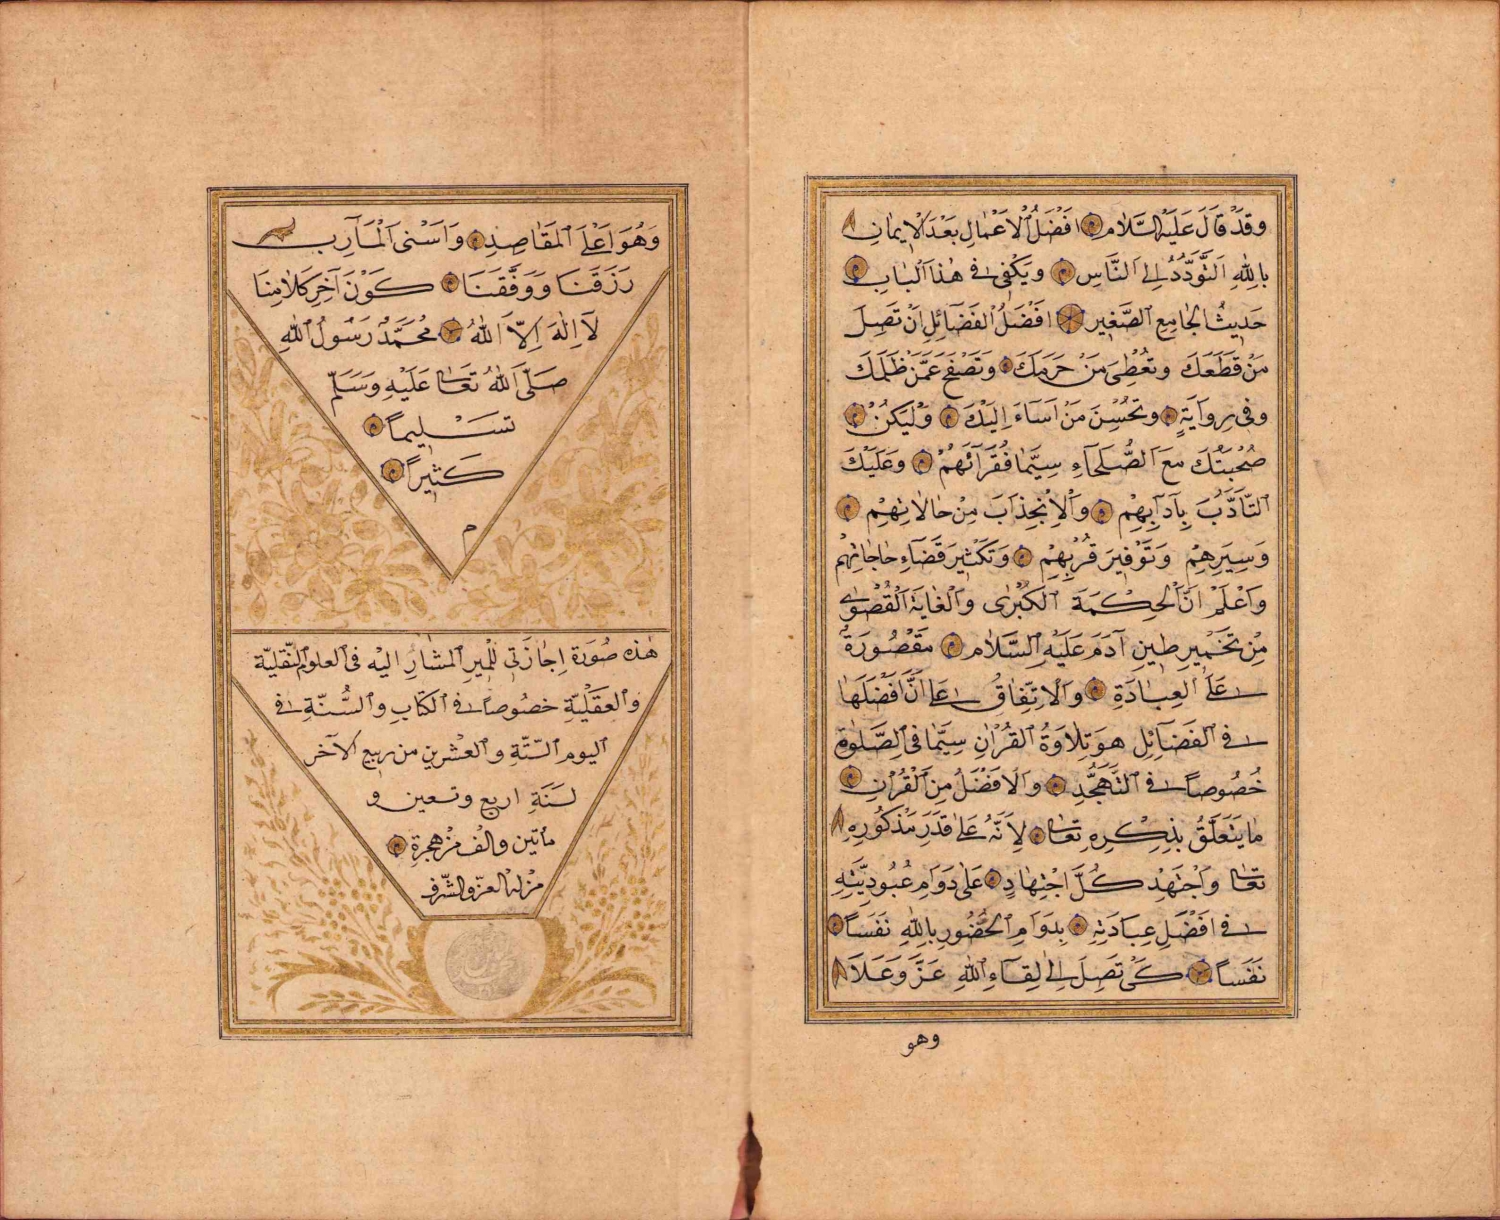 وَقَدْ قَالَ عَلَيْهِ السَّلَامُ اَفْضَلُ الْاَعْمَالِ بَعْدَ الْاِيمَانِ
بِاللهِ اَلتَّوَدُّدُ اِلَى النَّاسِ وَيَكْفِي فِي هٰذَا الْبَابِ
حَدِيثُ الْجَامِعِ الصَّغِيرِ اَفْضَلُ الْفَضَائِلِ اَنْ تَصِلَ
مَنْ قَطَعَكَ وَتُعْطِيَ مَنْ حَرَمَكَ وَتَصْفَحَ عَمَّنْ ظَلَمَكَ
وَفِي رِوَايَةٍ وَتُحْسِنَ مَنْ اَسَاءَ اِلَيْكَ وَلْيَكُنْ
صُحْبَتُكَ مَعَ الصُّلَحَاءِ سِيَّمَا فُقَرَائِهُمْ وَعَلَيْكَ
التَّأَدُّبَ بِآدَابِهِمْ وَالْاِنْجِذَابَ مِنْ حَالَاتِهِمْ
وَسِيَرِهِمْ وَتَوْفِيرَ قُرْبِهِمْ وَتَكْثِيرَ قَضَاءِ حَاجَاتِهِمْ
وَاعْلَمْ اَنَّ الْحِكْمَةَ الْكُبْرٰى وَالْغَايَةَ الْقُصْوٰى
مِنْ تَخْمِيرِ طِينِ آدَمَ عَلَيْهِ السَّلَامُ مَقْصُورَةٌ
عَلَى الْعِبَادَةِ وَالْاِتِّفَاقُ عَلَى اَنَّ اَفْضَلَهَا
فِي الْفَضَائِلِ هُوَ تِلَاوَةُ الْقُرْاٰنِ سِيَّمَا فِي الصَّلٰوةِ
خُصُوصاً فِي التَّهَجُّدِ وَالْاَفْضَلُ مِنَ الْقُرْاٰنِ
مَا يَتَعَلَّقُ بِذِكْرِهِ تَعَالَى لِاَنَّهُ عَلَى قَدَرِ مَذْكُورِهِ
تَعَالَى وَاجْتَهِدْ كُلَّ اجْتِهَادٍ عَلَى دَوَامِ عُبُودِيَّتِهِ
فِي اَفْضَلِ عِبَادَتِهِ بِدَوَامِ الْحُضُورِ بِاللهِ نَفَساً
نَفَساً كَيْ تَصِلَ اِلَى لِقَاءِ اللهِ عَزَّ وَعَلَا
وهو
وَهُوَ اَعْلَى الْمَقَاصِدِ وَاَسْنَى الْمَآرِبِ
رَزَقَنَا وَوَفَّقَنَا كَوْنَ آخِرِ كَلَامِنَا
لَا اِلٰهَ اِلَّا اللهُ مُحَمَّدٌ رَسُولُ اللهِ
صَلَّى اللهُ تَعَالَى عَلَيْهِ وَسَلَّمَ
تَسْلِيماً
كَثِيراً
م
هٰذِهِ صُورَةُ اِجَازَتِي لِلْمِيرِ الْمُشَارِ اِلَيْهِ فِي الْعُلُومِ النَّقْلِيَّةِ
وَالْعَقْلِيَّةِ خُصُوصاً فِي الْكِتَابِ وَالسُّنَّةِ فِي
اليوم السِّتَّةِ وَالْعِشْرِينَ مِنْ رَبِيعِ الْآخر
لِسَنَةِ اربع وتسعين و
مأتين والف من هجرة
من له العز والشرف